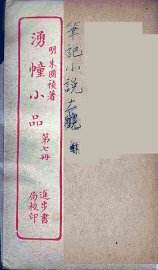 明朱國禎著
湧幢小品
第七冊
進步書
局校印
筆記小說大觀